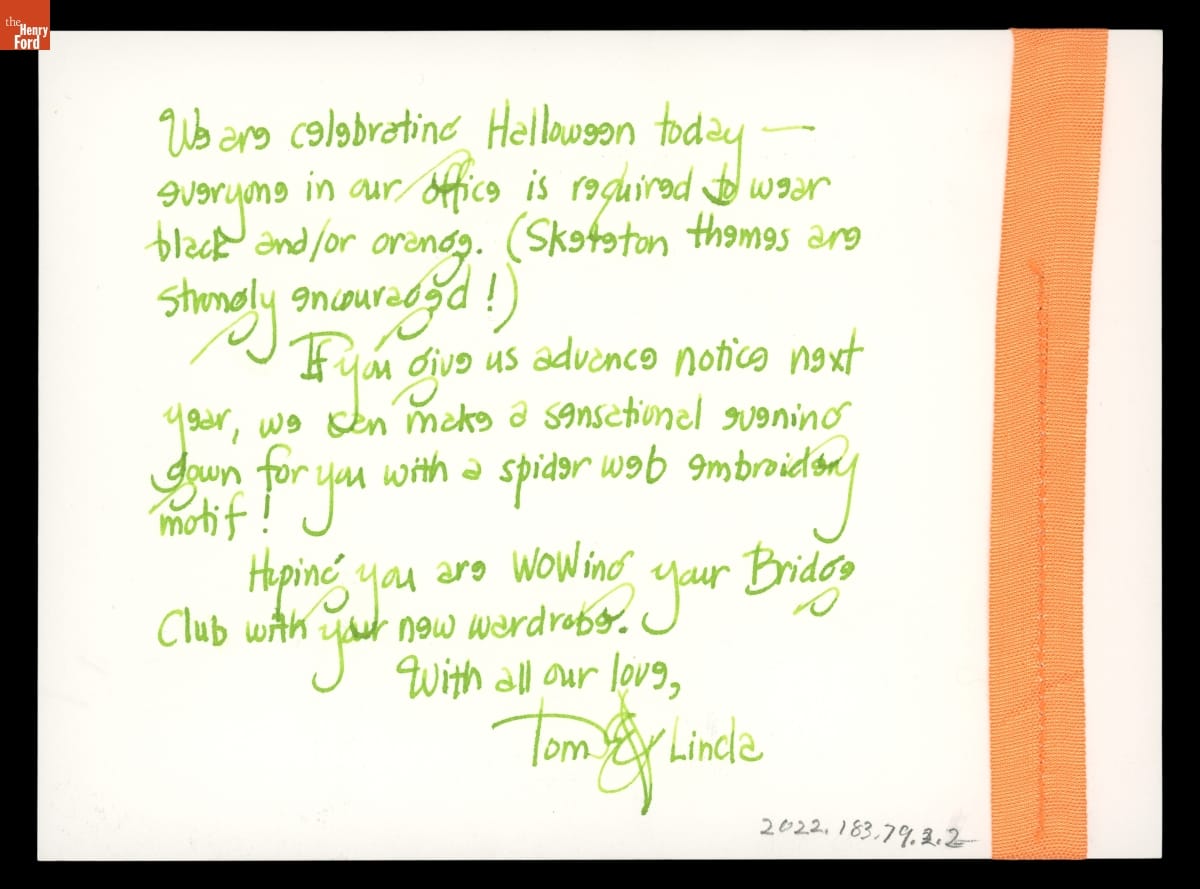 the
Henry
Ford
We are celebrating Halloween today —
everyone in our office is required to wear
black and/or orange. (Skeleton themes are
strongly encouraged!)
If you give us advance notice next
year, we can make a sensational evening
gown for you with a spider web embroidery
motif!
Hoping you are WOWing your Bridge
Club with your new wardrobe.
With all our love,
Tom & Linda
2022.183.79.3.2